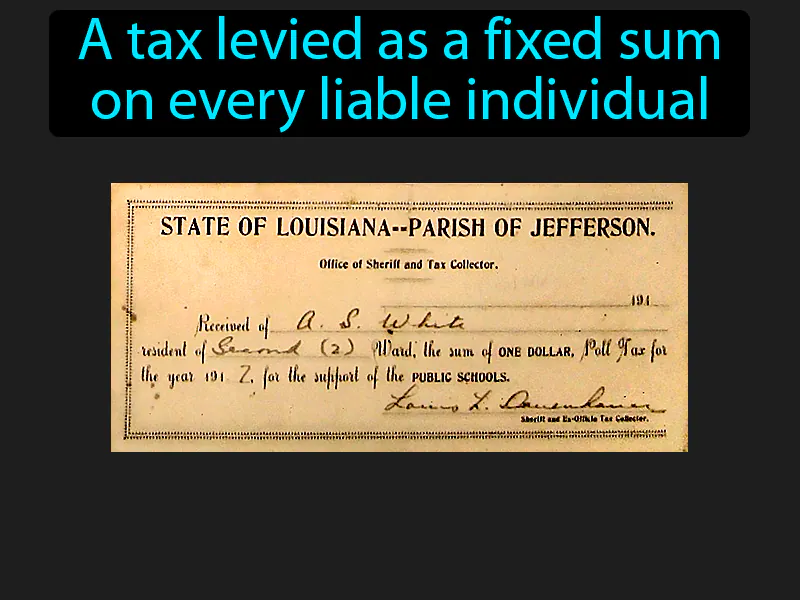 A tax levied as a fixed sum
on every liable individual
STATE OF LOUISIANA--PARISH OF JEFFERSON.
Office of Sheriff and Tax Collector.
191
Received of A. S. White
resident of Second (2) Ward, the sum of ONE DOLLAR, Poll Tax for
the year 191 7, for the support of the PUBLIC SCHOOLS.
Louis L.
Sheriff and Ex-Officio Tax Collector.